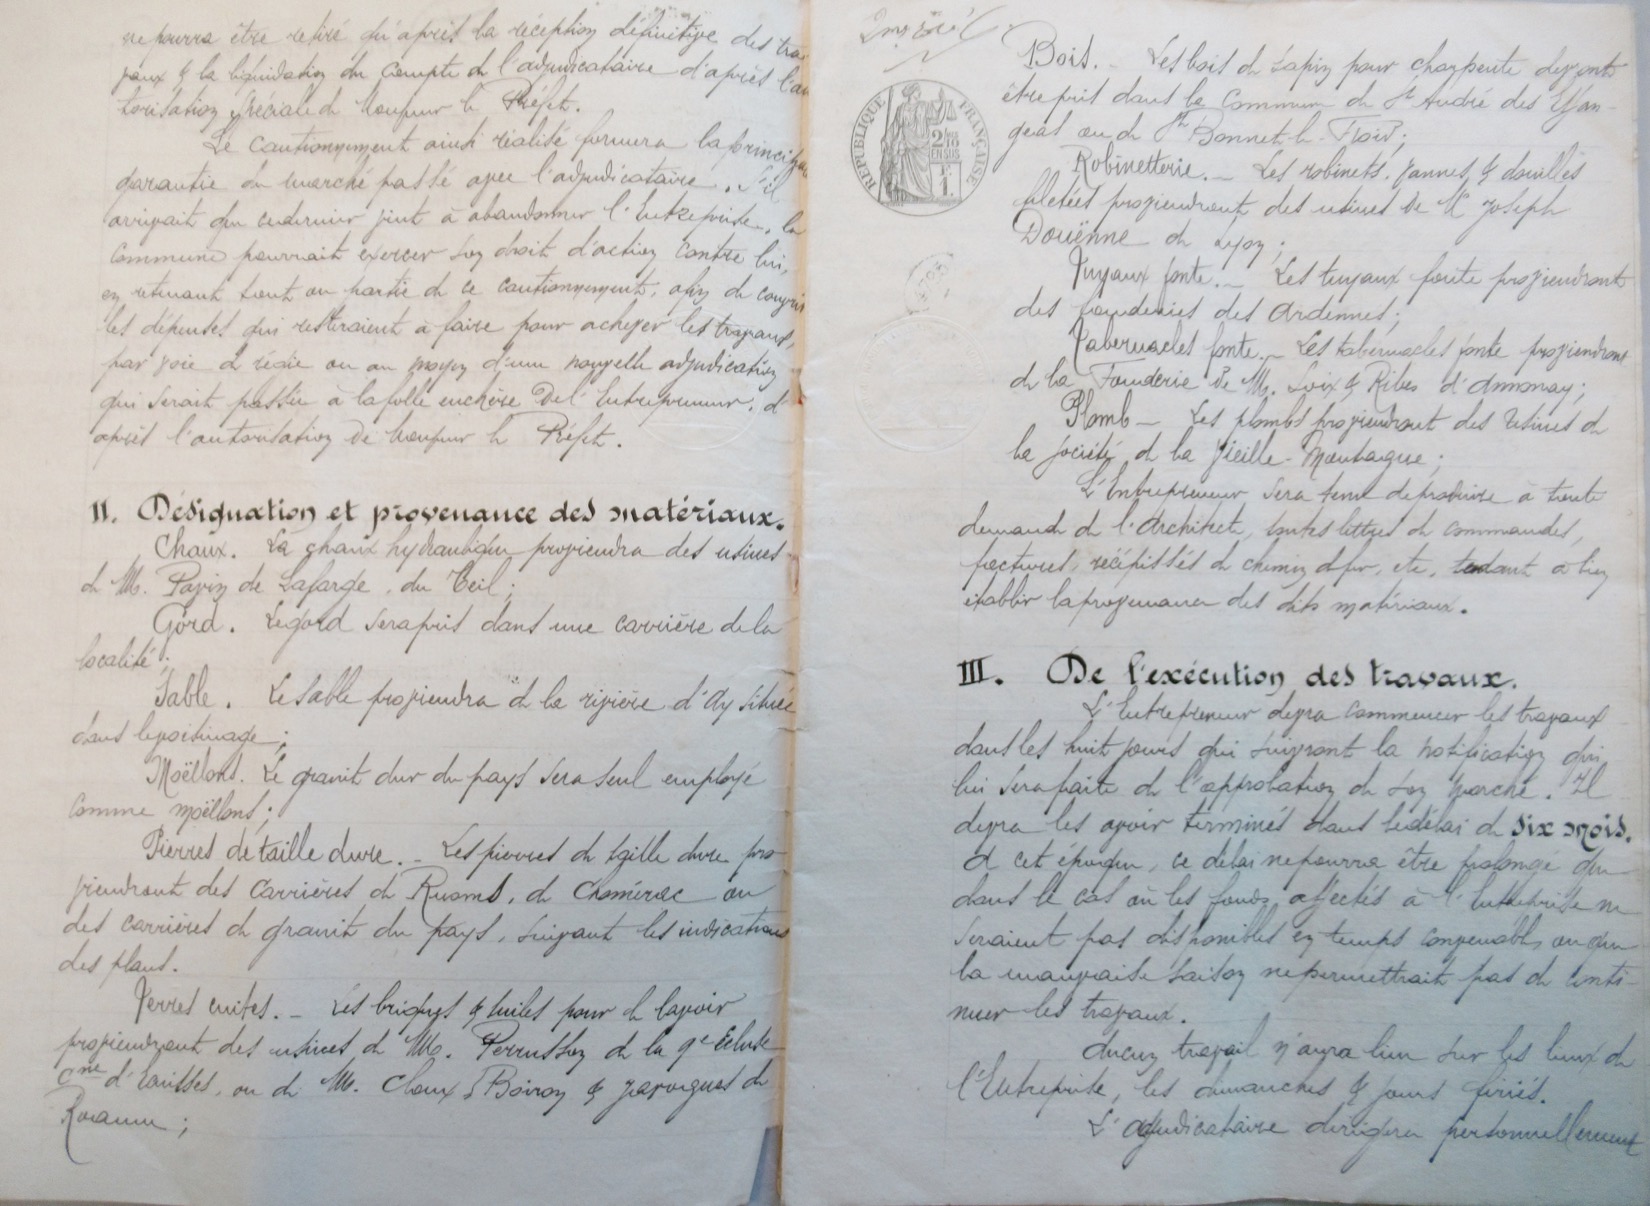 ne pourra être retiré qu'après la réception définitive des tra-
vaux & la liquidation du Compte de l'adjudicataire d'après l'au-
torisation spéciale de Monsieur le Préfet.
Le Cautionnement ainsi réalisé formera la principale
garantie du marché passé avec l'adjudicataire. S'il
arrivait que ce dernier vint à abandonner l'Entreprise, la
Commune pourrait exercer son droit d'action contre lui,
en retenant tout ou partie de ce cautionnement, afin de couvrir
les dépenses qui resteraient à faire pour achever les travaux,
par voie de régie ou au moyen d'une nouvelle adjudication
qui serait passée à la folle enchère De l'Entrepreneur, d'
après l'autorisation De Monsieur le Préfet.
II. Désignation et provenance des matériaux.
Chaux. La chaux hydraulique proviendra des usines
de M. Pavin de Lafarge, du Teil;
Gord. Le gord sera pris dans une carrière de la
localité;
Sable. Le sable proviendra de la rivière d'Ay située
dans le voisinage;
Moëllons. Le granit dur du pays sera seul employé
comme moëllons;
Pierres de taille dure. _ Les pierres de taille dure pro-
viendront des Carrières de Ruoms, de Chomérac ou
des carrières de granit du pays, suivant les indications
des plans.
Terres cuites. _ Les briques & tuiles pour le lavoir
proviendront des usines de M. Perrusson de la 9e Ecluse
Cne d'Ecuisses, ou de M.
Roanne;
2me Rôle
RÉPUBLIQUE FRANÇAISE
2/10
EN SUS
1F.
Bois. _ Les bois de sapin pour charpente devront
être pris dans la Commune de St André des Effan-
geas ou de St Bonnet-le-Froid;
Robinetterie. _ Les robinets, vannes, & douilles
filetées proviendront des usines De Mr Joseph
Douënne de Lyon;
Tuyaux fonte. _ Les tuyaux fonte proviendront
des fonderies des Ardennes;
Tabernacles fonte. _ Les tabernacles fonte proviendront
de la Fonderie De M. Soix & Ribes d'Annonay;
Plomb _ Les plombs proviendront des Usines de
la société de la Vieille-Montagne;
L'Entrepreneur sera tenu de produire à toute
demande de l'Architecte, toutes lettres de commandes,
factures, récépissés de chemin de fer, etc, tendant à bien
établir la provenance des dits matériaux.
III. De l'exécution des travaux.
L'Entrepreneur devra commencer les travaux
dans les huit jours qui suivront la notification qui
lui sera faite de l'approbation de son Marché. Il
devra les avoir terminés dans le délai de six mois.
A cet époque, ce délai ne pourra être prolongé que
dans le cas où les fonds affectés à l'Entreprise ne
seraient pas disponibles en temps convenable, ou que
la mauvaise saison ne permettrait pas de conti-
nuer les travaux.
Aucun travail n'aura lieu sur les lieux de
l'Entreprise, les dimanches & jours fériés.
L'adjudicataire dirigera personnellement